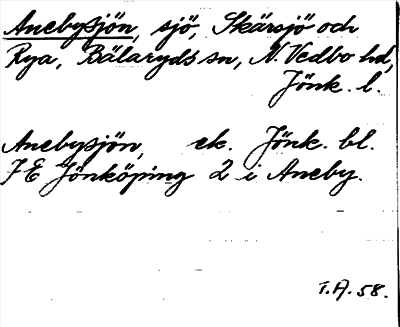 Anebysjön, sjö, Skärsjö och
Rya, Bälaryds sn, N. Vedbo hd,
Jönk. l.
Anebysjön, ek. Jönk. bl.
7E Jönköping 2 i Aneby.
T.A. 58.